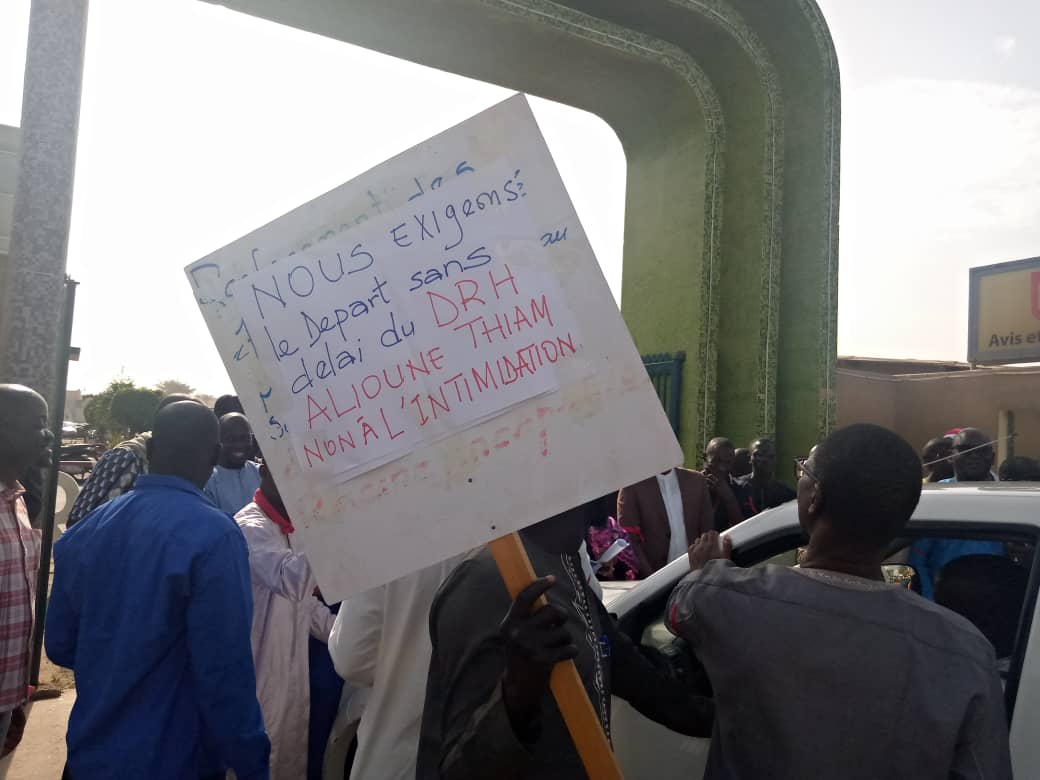 NOUS EXIGEONS:
le Depart sans
delai du DRH
ALIOUNE THIAM
NON À L'INTIMIDATION
au
Avis et